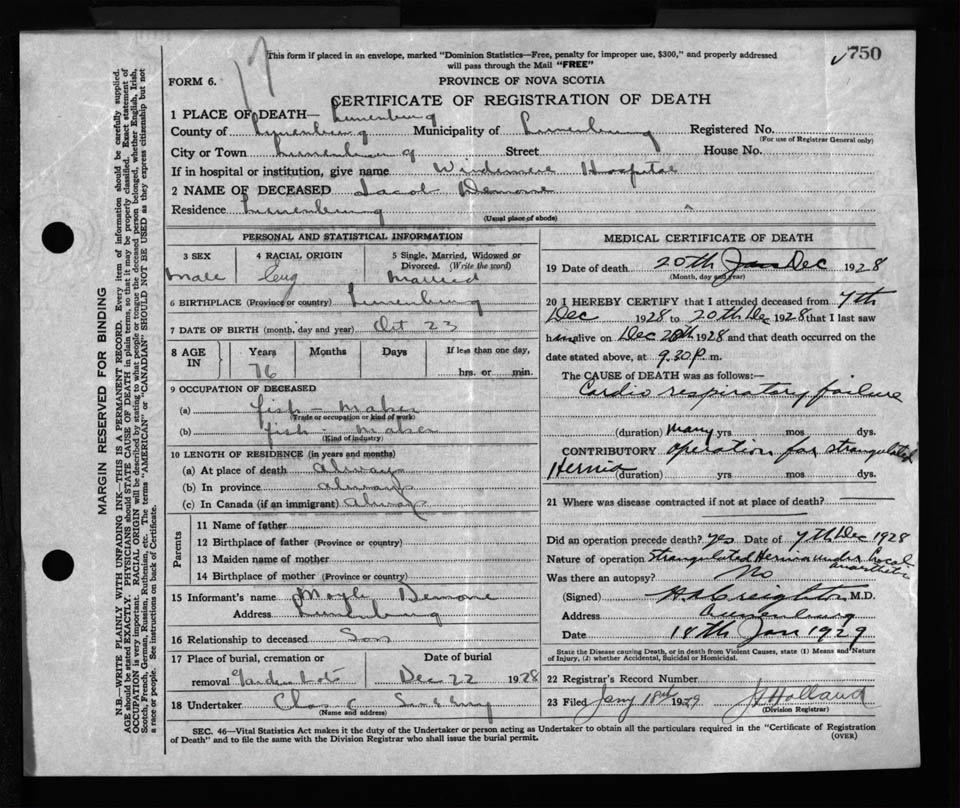 This form if placed in an envelope, marked "Dominion Statistics—Free, penalty for improper use, $300," and properly addressed
will pass through the Mail "FREE"
17
750
FORM 6.
PROVINCE OF NOVA SCOTIA
CERTIFICATE OF REGISTRATION OF DEATH
1 PLACE OF DEATH— Lunenburg
County of Lunenburg Municipality of Lunenburg Registered No.
(For use of Registrar General only)
City or Town Lunenburg Street House No.
If in hospital or institution, give name Hospital
2 NAME OF DECEASED Jacob Demone
Residence Lunenburg
(Usual place of abode)
PERSONAL AND STATISTICAL INFORMATION
3 SEX 4 RACIAL ORIGIN 5 Single, Married, Widowed or Divorced. (Write the word)
Male Eng Married
6 BIRTHPLACE (Province or country) Lunenburg
7 DATE OF BIRTH (month, day and year) Oct 23
8 AGE IN Years Months Days If less than one day,
76 hrs. or min.
9 OCCUPATION OF DECEASED
(a) fish - maker
(Trade or occupation or kind of work)
(b) fish - maker
(Kind of industry)
10 LENGTH OF RESIDENCE (in years and months)
(a) At place of death always
(b) In province always
(c) In Canada (if an immigrant) always
Parents
11 Name of father
12 Birthplace of father (Province or country)
13 Maiden name of mother
14 Birthplace of mother (Province or country)
15 Informant's name Demone
Address Lunenburg
16 Relationship to deceased Son
17 Place of burial, cremation or Date of burial
removal Dec 22 1928
18 Undertaker Chas
(Name and address)
MEDICAL CERTIFICATE OF DEATH
19 Date of death 20th Jan Dec 1928
(Month, day and year)
20 I HEREBY CERTIFY that I attended deceased from 7th
Dec 1928 to 20th Dec 1928 that I last saw
him alive on Dec 20th 1928 and that death occurred on the
date stated above, at 9.30 P.m.
The CAUSE of DEATH was as follows:—
Cardio respiratory failure
(duration) many yrs mos dys.
CONTRIBUTORY operation for strangulated
Hernia (duration) yrs mos dys.
21 Where was disease contracted if not at place of death?
Did an operation precede death? yes Date of 7th Dec 1928
Nature of operation Strangulated Hernia under local
anaesthetic
Was there an autopsy? No
(Signed) H A Creighton M.D.
Address Lunenburg
Date 18th Jan 1929
State the Disease causing Death, or in death from Violent Causes, state (1) Means and Nature
of Injury, (2) whether Accidental, Suicidal or Homicidal.
22 Registrar's Record Number
23 Filed Jany 18th 1929 Holland
(Division Registrar)
SEC. 46—Vital Statistics Act makes it the duty of the Undertaker or person acting as Undertaker to obtain all the particulars required in the "Certificate of Registration
of Death" and to file the same with the Division Registrar who shall issue the burial permit. (OVER)
MARGIN RESERVED FOR BINDING
N.B.—WRITE PLAINLY WITH UNFADING INK—THIS IS A PERMANENT RECORD. Every item of information should be carefully supplied.
AGE should be stated EXACTLY. PHYSICIANS should STATE CAUSE OF DEATH in plain terms, so that it may be properly classified. Exact statement of
OCCUPATION is very important. RACIAL ORIGIN will be described by stating to what people or tongue the deceased person belonged, whether English, Irish,
Scotch, French, German, Russian, Ruthenian, etc. The terms "AMERICAN" or "CANADIAN" SHOULD NOT BE USED as they express citizenship but not
a race or people. See instructions on back of Certificate.